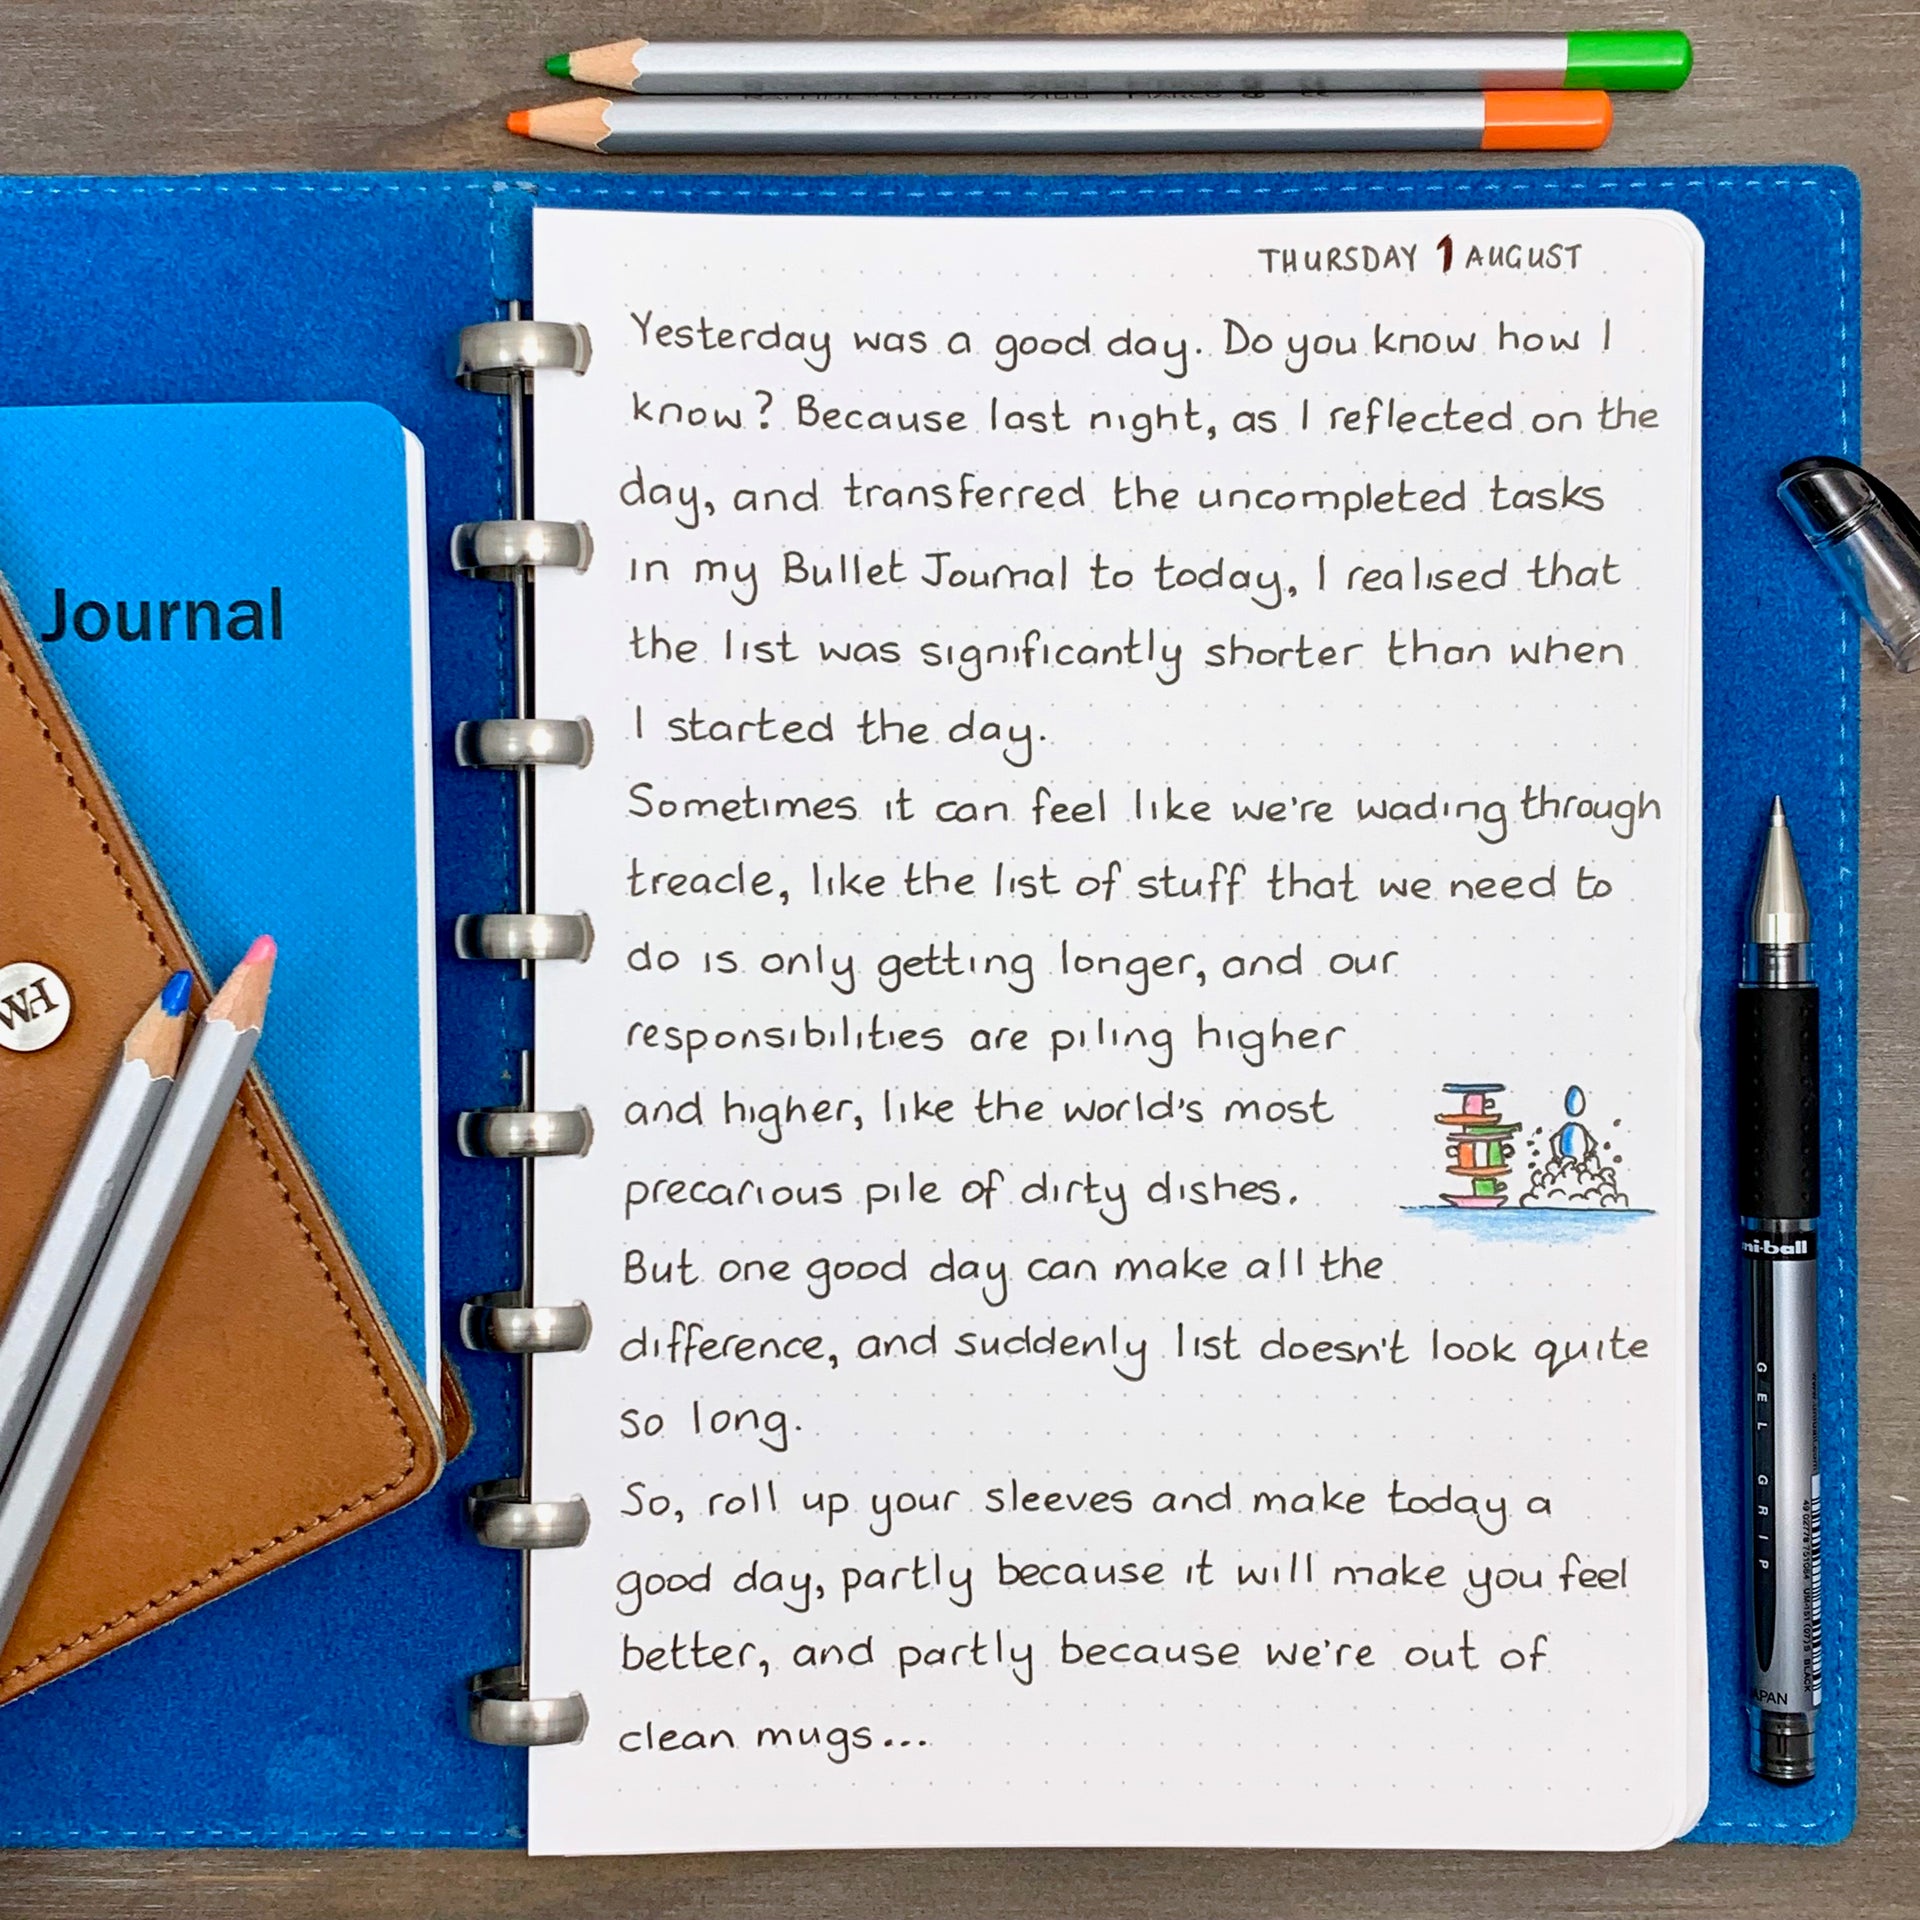 THURSDAY 1 AUGUST
Yesterday was a good day. Do you know how I
know? Because last night, as I reflected on the
day, and transferred the uncompleted tasks
in my Bullet Journal to today, I realised that
the list was significantly shorter than when
I started the day.
Sometimes it can feel like we're wading through
treacle, like the list of stuff that we need to
do is only getting longer, and our
responsibilities are piling higher
and higher, like the world's most
precarious pile of dirty dishes.
But one good day can make all the
difference, and suddenly list doesn't look quite
so long.
So, roll up your sleeves and make today a
good day, partly because it will make you feel
better, and partly because we're out of
clean mugs...
Journal
ni-ball
GEL GRIP
APAN